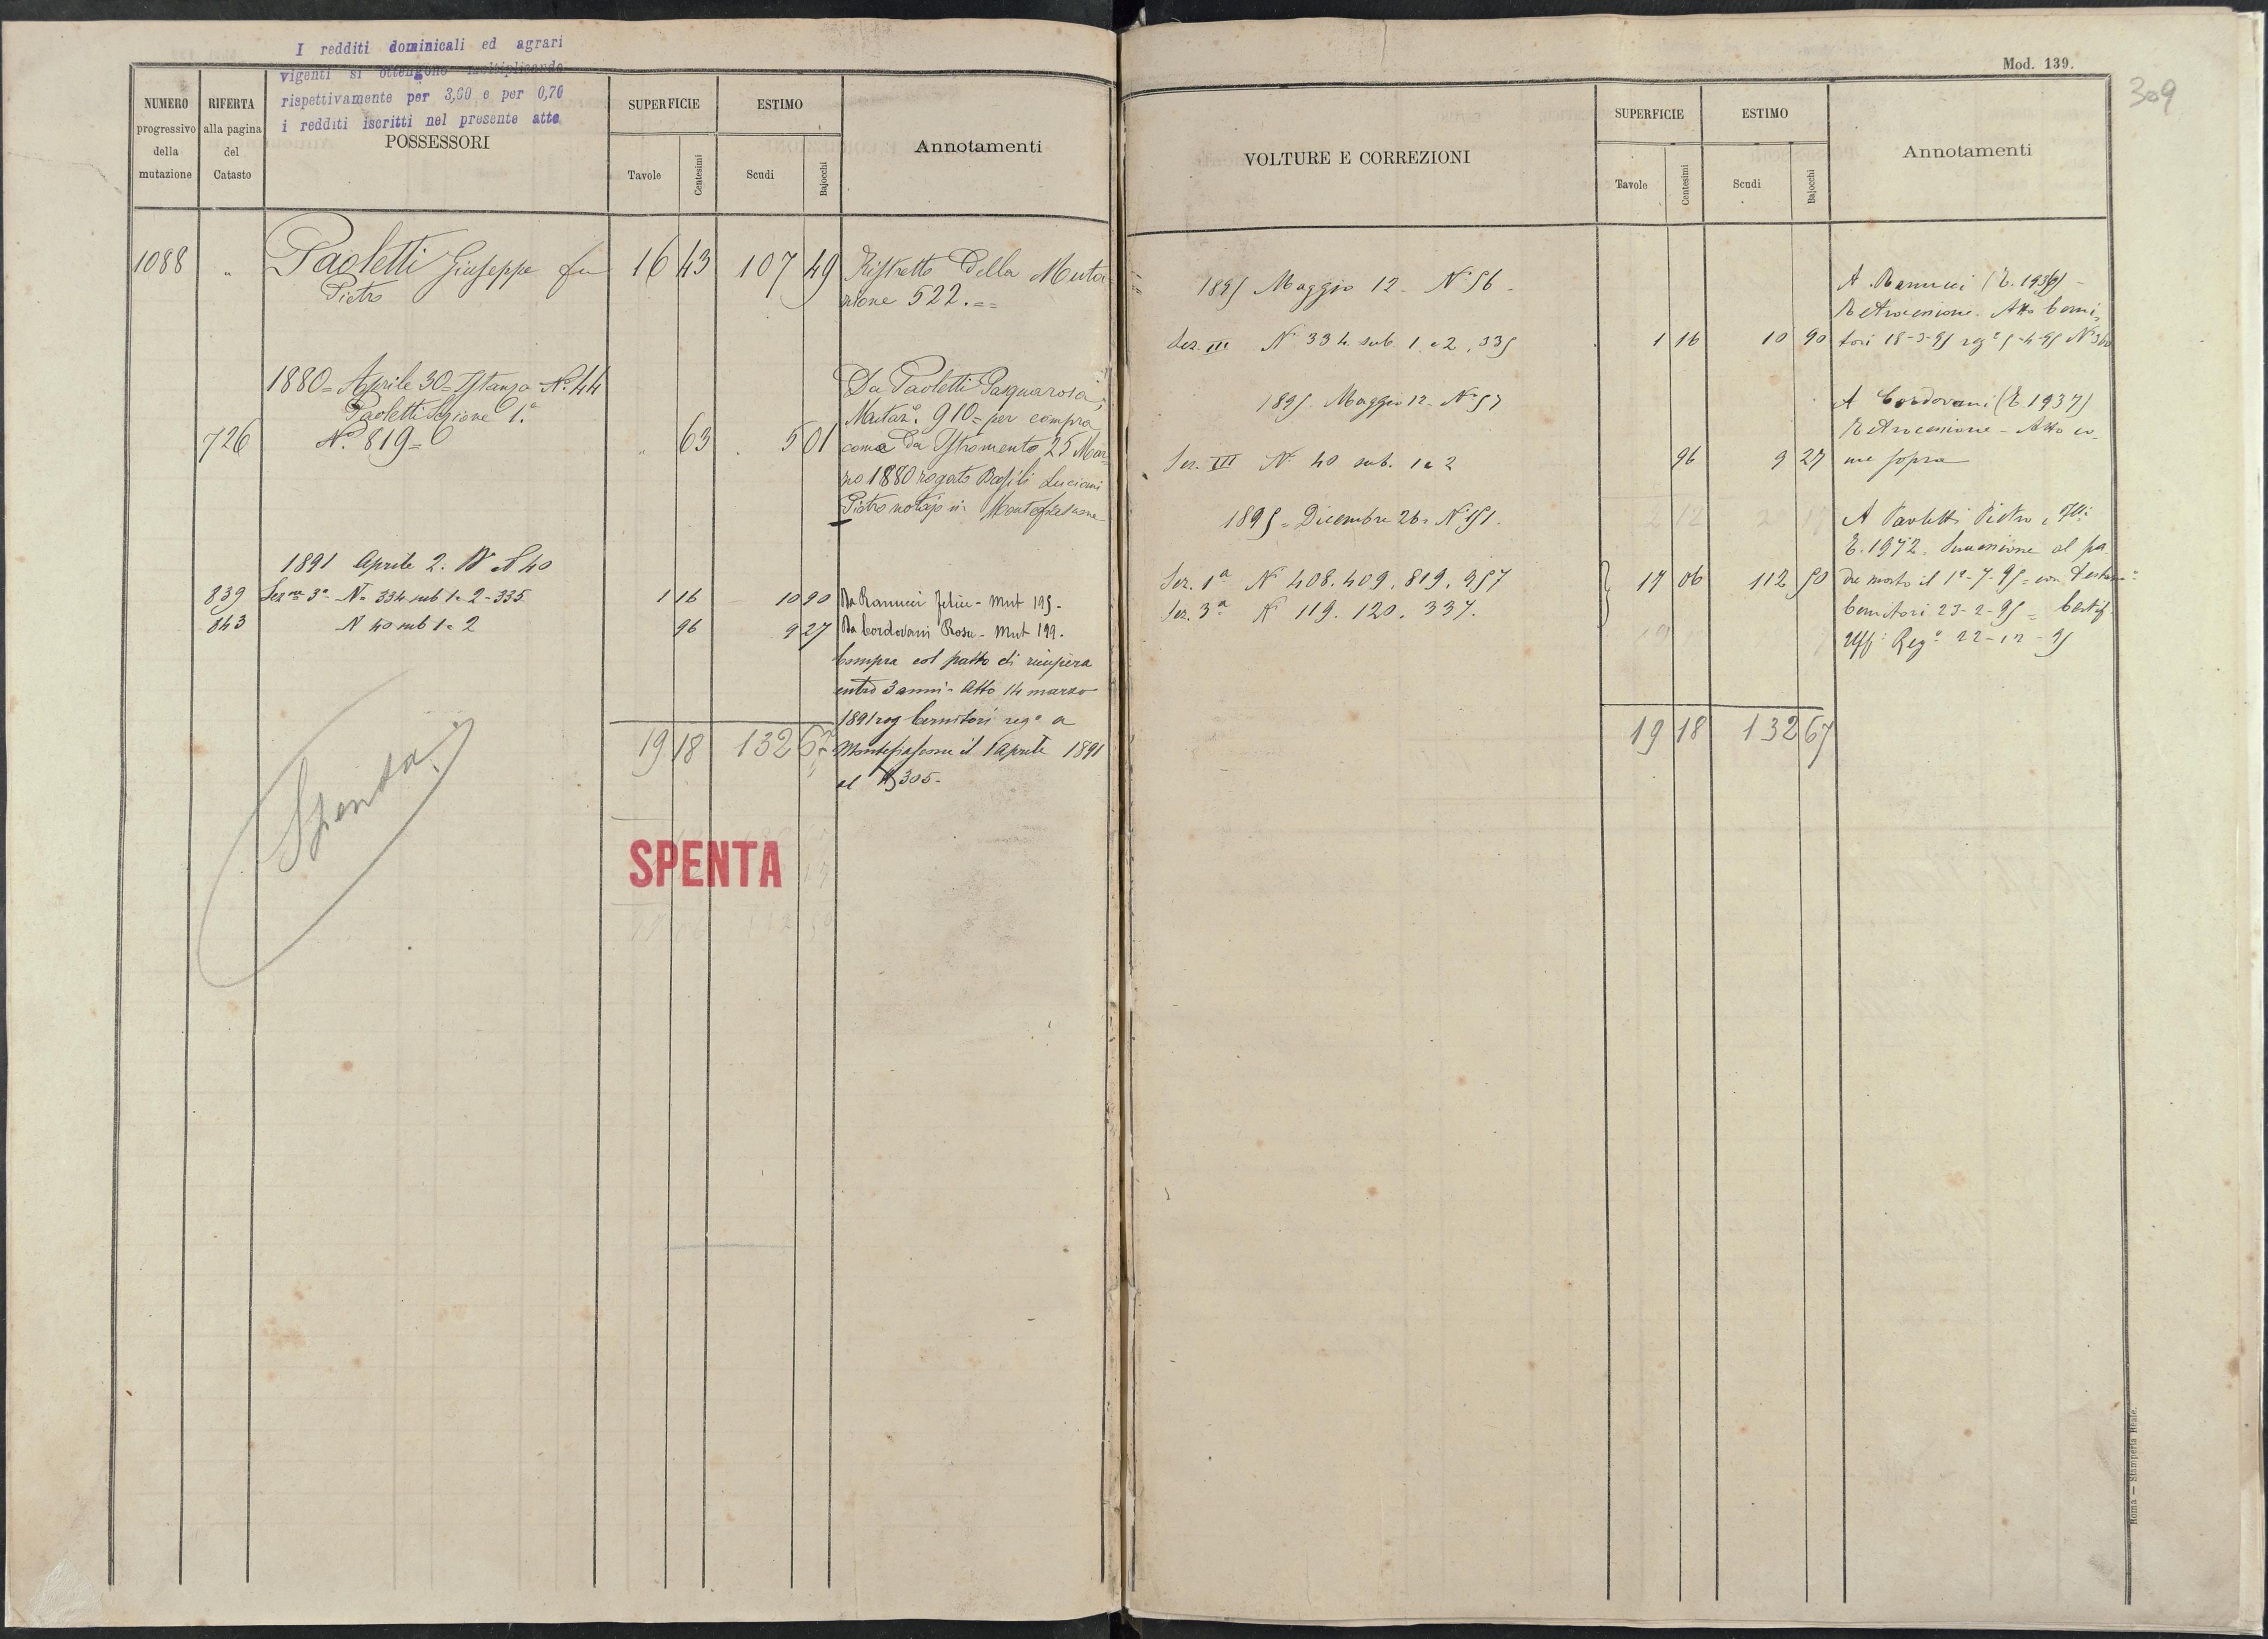 I redditi dominicali ed agrari
vigenti si ottengono moltiplicando
rispettivamente per 3,60 e per 0,70
i redditi iscritti nel presente atto
NUMERO
progressivo
della
mutazione
RIFERTA
alla pagina
del
Catasto
POSSESSORI
SUPERFICIE
Tavole
Centesimi
ESTIMO
Scudi
Bajocchi
Annotamenti
1088 " Paoletti Giuseppe fu 16 43 107 49 Ristretto Della Muta-
Pietro zione 522.==
1880= Aprile 30= Istanza N.º 44 Da Paoletti Pasquarosa,
Paoletti Sezione 1.ª Mutaz.e 910= per compra
726 N.º 819= " 63 5 01 come Da Istromento 25 Mar-
zo 1880 rogato Basili Luciani
Pietro notajo in Montefiascone
1891 Aprile 2. N 40
839 Sezne 3ª N. 334 sub 1. 2 - 335 1 16 10 90 Da Ranucci Felice - Mut 195 -
843 N 40 sub 1 e 2 96 9 27 Da Cordovani Rosa - Mut 199.
Compra col patto di ricupera
entro 3 anni - Atto 14 marzo
1891 rog Cernitori rego a
19 18 132 67 Montefiascone il 1 aprile 1891
al N 305.
Spenta
SPENTA
Mod. 139.
309
VOLTURE E CORREZIONI
SUPERFICIE
Tavole
Centesimi
ESTIMO
Scudi
Bajocchi
Annotamenti
1895 Maggio 12 - N. 56 - A Ranucci (E. 1936) -
Retrocessione. Atto Cerni-
Sez. III N. 334 sub 1 e 2, 335 1 16 10 90 tori 18-3-95 rego 5-4-95 N 360
1895. Maggio 12 - N. 57 A Cordovani (E. 1937)
Retrocessione - Atto co-
Sez. III N. 40 sub. 1 e 2 96 9 27 me sopra
1895 = Dicembre 26 = N. 151. A Paoletti Pietro e Flli
E. 1972. Successione al pa-
Sez. 1ª N 408. 409. 819. 957 17 06 112 50 dre morto il 1º-7-95 = con Testam:
Sez. 3ª N 119. 120. 337. Cernitori 23-2-95 = Certif.
Uff: Rego 22-12-95
19 18 132 67
Roma — Stamperia Reale.